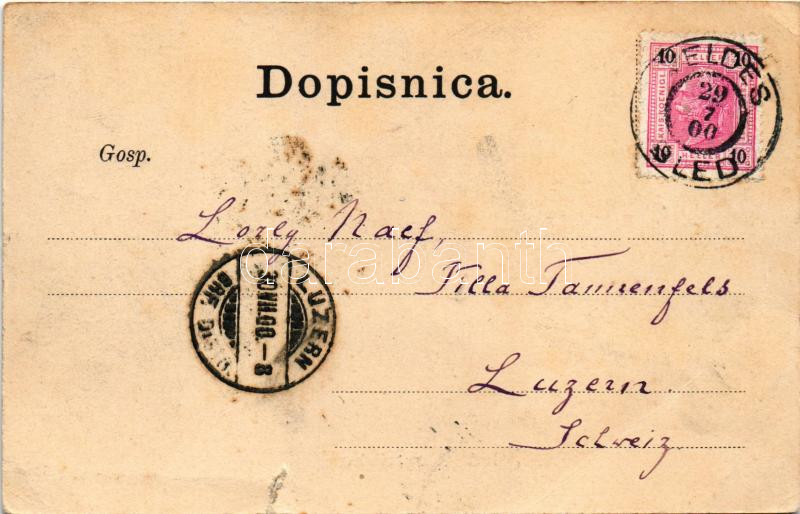 Dopisnica.
10 10
KAIS. KOENIGL.
10 HELLER 10
VELDES
29
7
00
BLED
Gosp.
Lorly Naef,
Villa Tannenfels
Luzern
Schweiz.
LUZERN
30.VII.00.–8
BRF.
darabanth